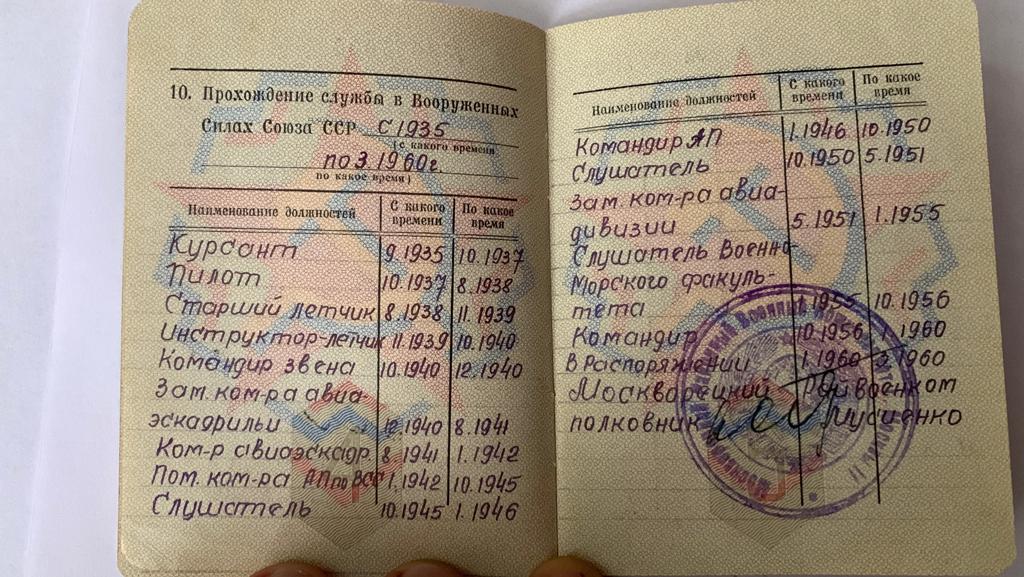 10. Прохождение службы в Вооруженных
Силах Союза ССР с 1935
(с какого времени
по 3.1960г.
по какое время)
Наименование должностей С какого времени По какое время
Курсант 9.1935 10.1937
Пилот 10.1937 8.1938
Старший летчик 8.1938 11.1939
Инструктор-летчик 11.1939 10.1940
Командир звена 10.1940 12.1940
Зам. ком-ра авиа
эскадрильи 12.1940 8.1941
Ком-р авиаэскадр. 8.1941 1.1942
Пом. ком-ра АП по ВСС 1.1942 10.1945
Слушатель 10.1945 1.1946
Наименование должностей С какого времени По какое время
Командир АП 1.1946 10.1950
Слушатель 10.1950 5.1951
Зам. ком-ра авиа-
дивизии 5.1951 1.1955
Слушатель Военно
Морского факуль-
тета 1.1955 10.1956
Командир 10.1956 1.1960
В распоряжении 1.1960 3.1960
Москворецкий Райвоенком
полковник